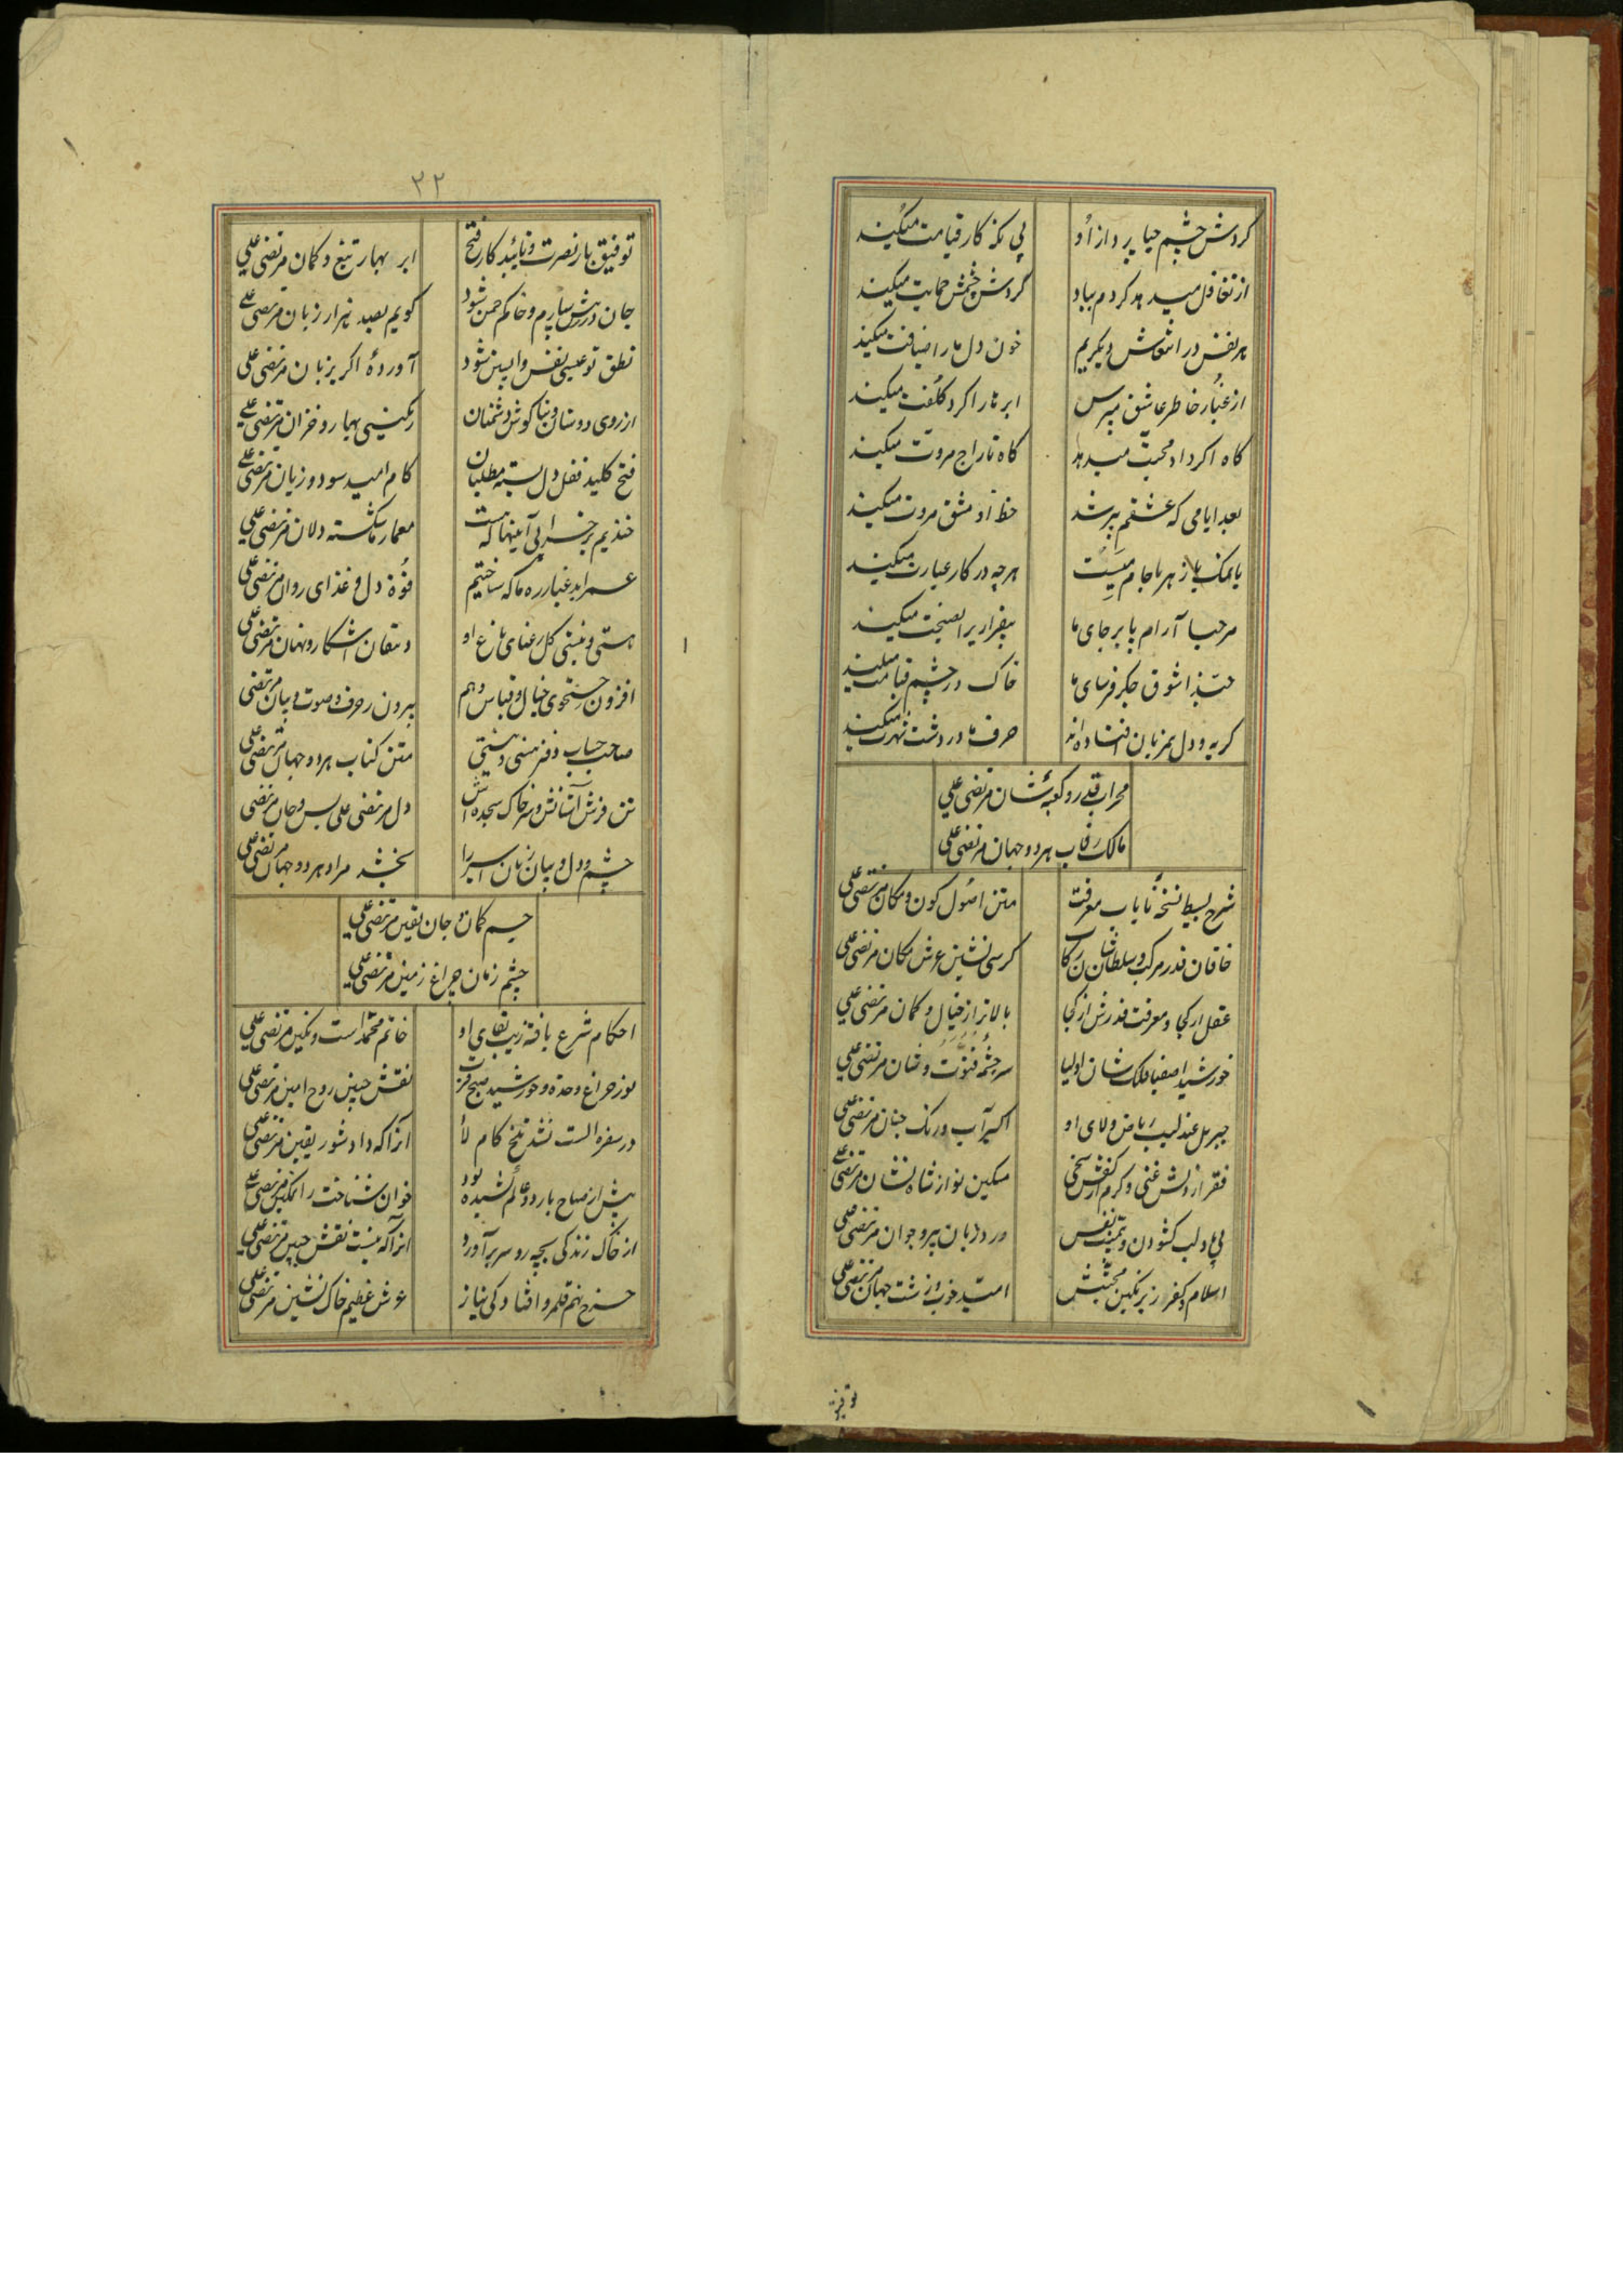 گردش چشم حیا پرداز او
پی نگه کار قیامت میکند
از تغافل میدهد گردم بباد
گردش چشمش حمایت میکند
هر نفس در آتش دیگریم
خون دل ما را ضیافت میکند
از غبار خاطر عاشق مپرس
ابر ما را گرد کلفت میکند
گاه اگر داد محبت میدهد
گاه تاراج مروت میکند
بعد ایامی که عشقم پیر شد
خط او مشق مروت میکند
با نمک یا زهر با جام میست
هرچه در کار عبارت میکند
مرحبا آرام پا برجای ما
بیقراریرا نصیحت میکند
حبذا شوق جگرفرسای ما
خاک در چشم قیامت میکند
گریه و دل همزبان افتاده‌اند
حرف ما در دشت شهرت میکند
محراب قدر و کعبه شان مرتضی علی
مالک رقاب هر دو جهان مرتضی علی
شرح بسیط نسخه نایاب معرفت
متن اصول کون و مکان مرتضی علی
خاقان قدر مرکب و سلطان رکاب
کرسی نشین عرش مکان مرتضی علی
عقل از کجا و معرفت قدرش از کجا
بالاتر از خیال و گمان مرتضی علی
خورشید اصفیا فلک شان اولیا
سرچشمه فتوت و شان مرتضی علی
جبریل عندلیب ریاض ولای او
اکسیر آب و رنگ جنان مرتضی علی
فقر از دلش غنی و کرم از کفش سخی
مسکین نواز شاه نشان مرتضی علی
بی یاد لب گشودن و نفس
ورد زبان پیر و جوان مرتضی علی
اسلام و کفر زیر نگین محبتش
امید خوب و زشت جهان مرتضی علی
توفیق
۲۲
توفیق یار نصرت و تائید کار فتح
ابر بهار تیغ و کمان مرتضی علی
جان در رهش سپارم و خاکم چمن شود
گویم بصد هزار زبان مرتضی علی
نطق تو عیسی نفس واپسین شود
آورده اگر بزبان مرتضی علی
از روی دوستان و بناگوش دشمنان
رنگینی بهار و خزان مرتضی علی
فتح کلید قفل دل بسته مطلبان
کام امید سود و زیان مرتضی علی
خندیم بر خرابی آنها که هست
معمار ما شکسته دلان مرتضی علی
عمر ابد غبار ره ما که ساختیم
قوة دل و غذای روان مرتضی علی
هستی و نیستی گل رعنای باغ او
دهقان آشکار و نهان مرتضی علی
افزون ز جستجوی خیال و قیاس و هم
بیرون ز حرف و صوت و بیان مرتضی علی
صاحب حساب دفتر هستی و نیستی
متن کتاب هر دو جهان مرتضی علی
تن فرش آستانش و سر خاک سجده‌اش
دل مرتضی علی بس و جان مرتضی علی
چشم و دل و بیان زبان اسیر را
بخشد مراد هر دو جهان مرتضی علی
جسم گمان و جان یقین مرتضی علی
چشم زمان چراغ زمین مرتضی علی
احکام شرع یافته زیب بقای او
خاتم محمد است و نگین مرتضی علی
نور چراغ وحدة و خورشید صبح
نقش جبین روح امین مرتضی علی
در سفره الست نشد تلخ کام لا
آنرا که داد شور یقین مرتضی علی
پیش از صباح بار دو عالم کشیده بود
خوان شناخت را نمکین مرتضی علی
از خاک زندگی بچه رو سر برآورد
آنرا که نیست نقش جبین مرتضی علی
چرخ نهم قلمرو افتادگی نیاز
عرش عظیم خاک نشین مرتضی علی